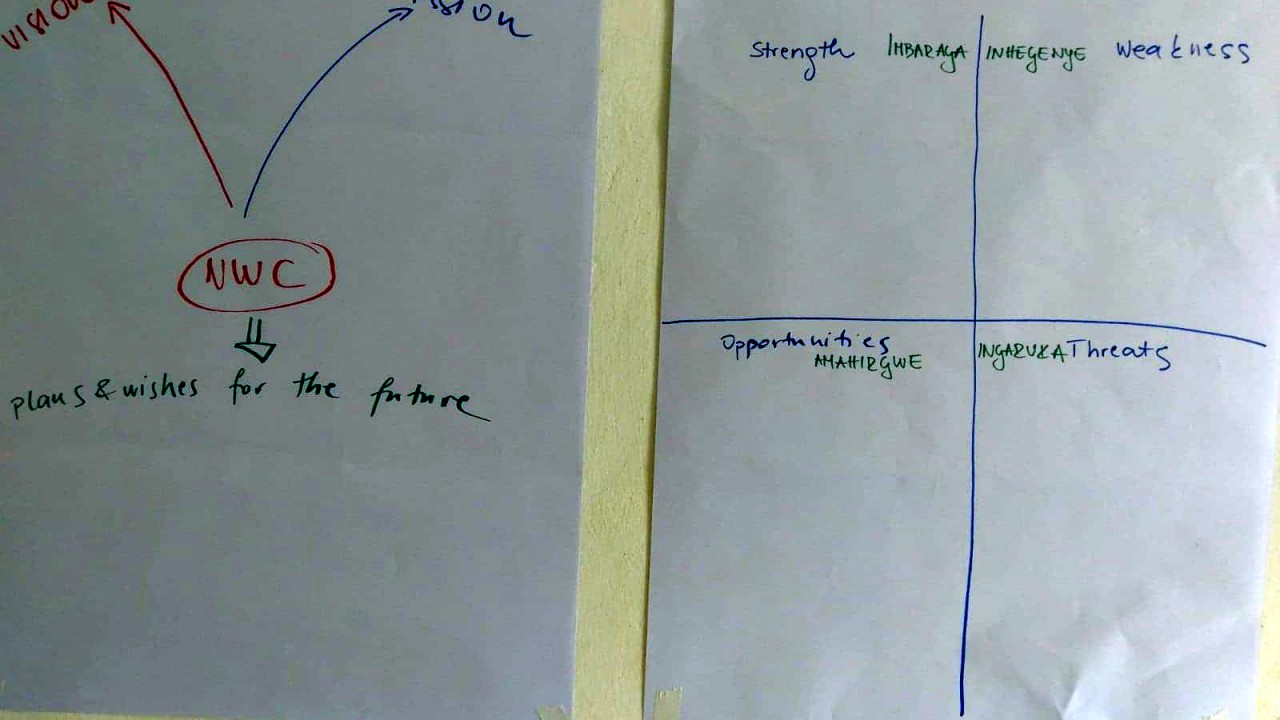 vision
NWC
plans & wishes for the future
Strength IMBARAGA INHEGENYE Weakness
Opportunities
AMAHIRGWE
INGARUKA Threats